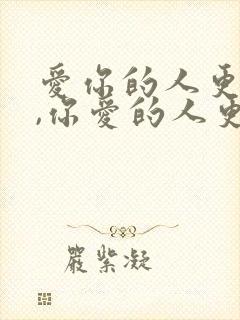 愛你的人更
,你愛的人更
嚴紫凝